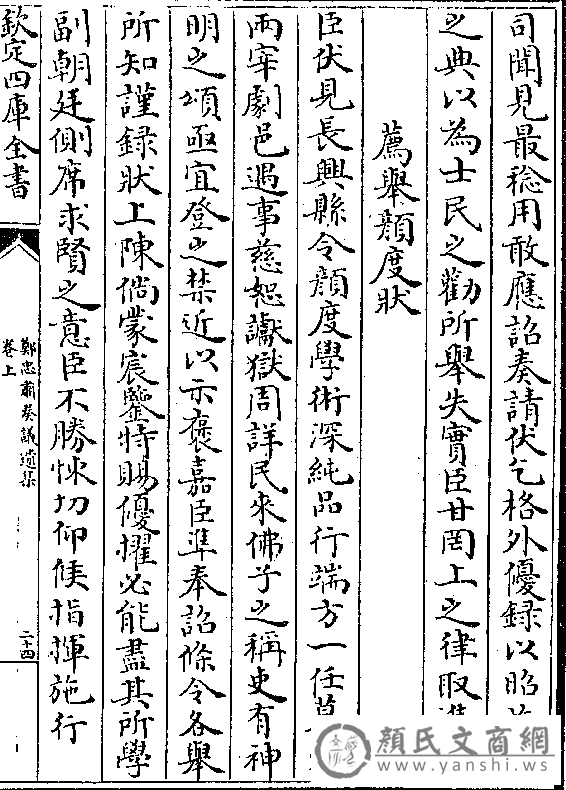 司聞見最稔用敢應詔奏請伏乞格外優録以昭
之典以為士民之勸所舉失實臣甘罔上之律取進
薦舉顔度狀
臣伏見長興縣令顔度學術深純品行端方一任
兩宰劇邑遇事慈恕讞獄周詳民來佛子之稱吏有神
明之頌亟宜登之禁近以示褒嘉臣準奉詔條令各舉
所知謹録狀上陳倘蒙宸鑒特賜優擢必能盡其所學
副朝廷側席求賢之意臣不勝悚切仰候指揮施行
欽定四庫全書
鄭忠肅奏議遺集
卷上
二十四
顔氏文商網
www.yanshi.ws